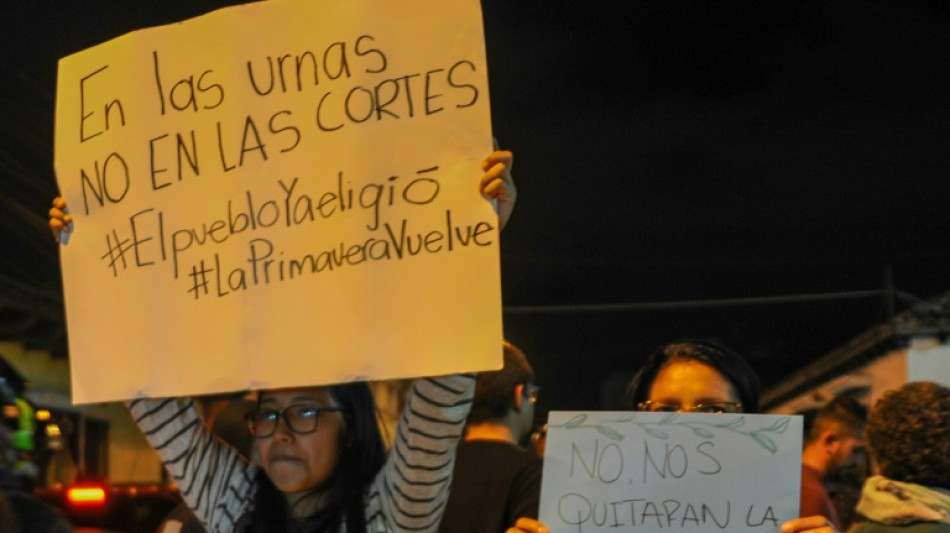 En las urnas
NO EN LAS CORTES
#ElpuebloYaeligió
#LaPrimaveraVuelve
NO NOS
QUITARAN LA